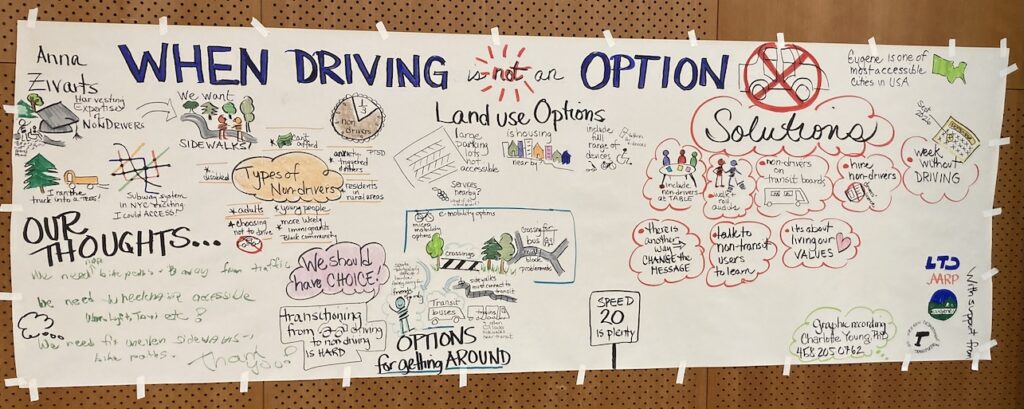 Anna
Zivarts
WHEN DRIVING is not an OPTION
Eugene is one of
most accessible
Cities in USA
Harvesting
Expertise
of
NonDRIVERS
We want
SIDEWALKS!
1/3
non
drivers
I ran the
truck into a TREE!
Subway system
in NYC exciting
I could ACCESS!
Types of
Non-drivers
disabled
can't
afford
PTSD
residents
in rural areas
adults
choosing
not to drive
young people
more likely
immigrants
Black community
Land use Options
large
parking
lots
not
accessible
is housing
near by
include
full
range of
devices
Services
nearby?
Solutions
include
non-drivers
at TABLE
walk
roll
audits
non-drivers
on transit boards
hire
non-drivers
week
without
DRIVING
there is
another
way
CHANGE the
MESSAGE
talk to
non-transit
users
to learn
its about
living our
VALUES
OUR
THOUGHTS...
We need bike paths - away from traffic
We need wheelchair accessible
We need fix uneven sidewalks -
bike paths -
We should
have CHOICE!
transitioning
from driving
to non driving
is HARD
e-mobility options
micro
mobility
options
crossings
crossing
bus
block
problematic
sidewalks
must connect to
transit
Transit
buses
trains
OPTIONS
for getting AROUND
SPEED
20
is plenty
LTD
AARP
Eugene
with support from
Graphic recording
Charlotte Young, PhD
458 205 0762